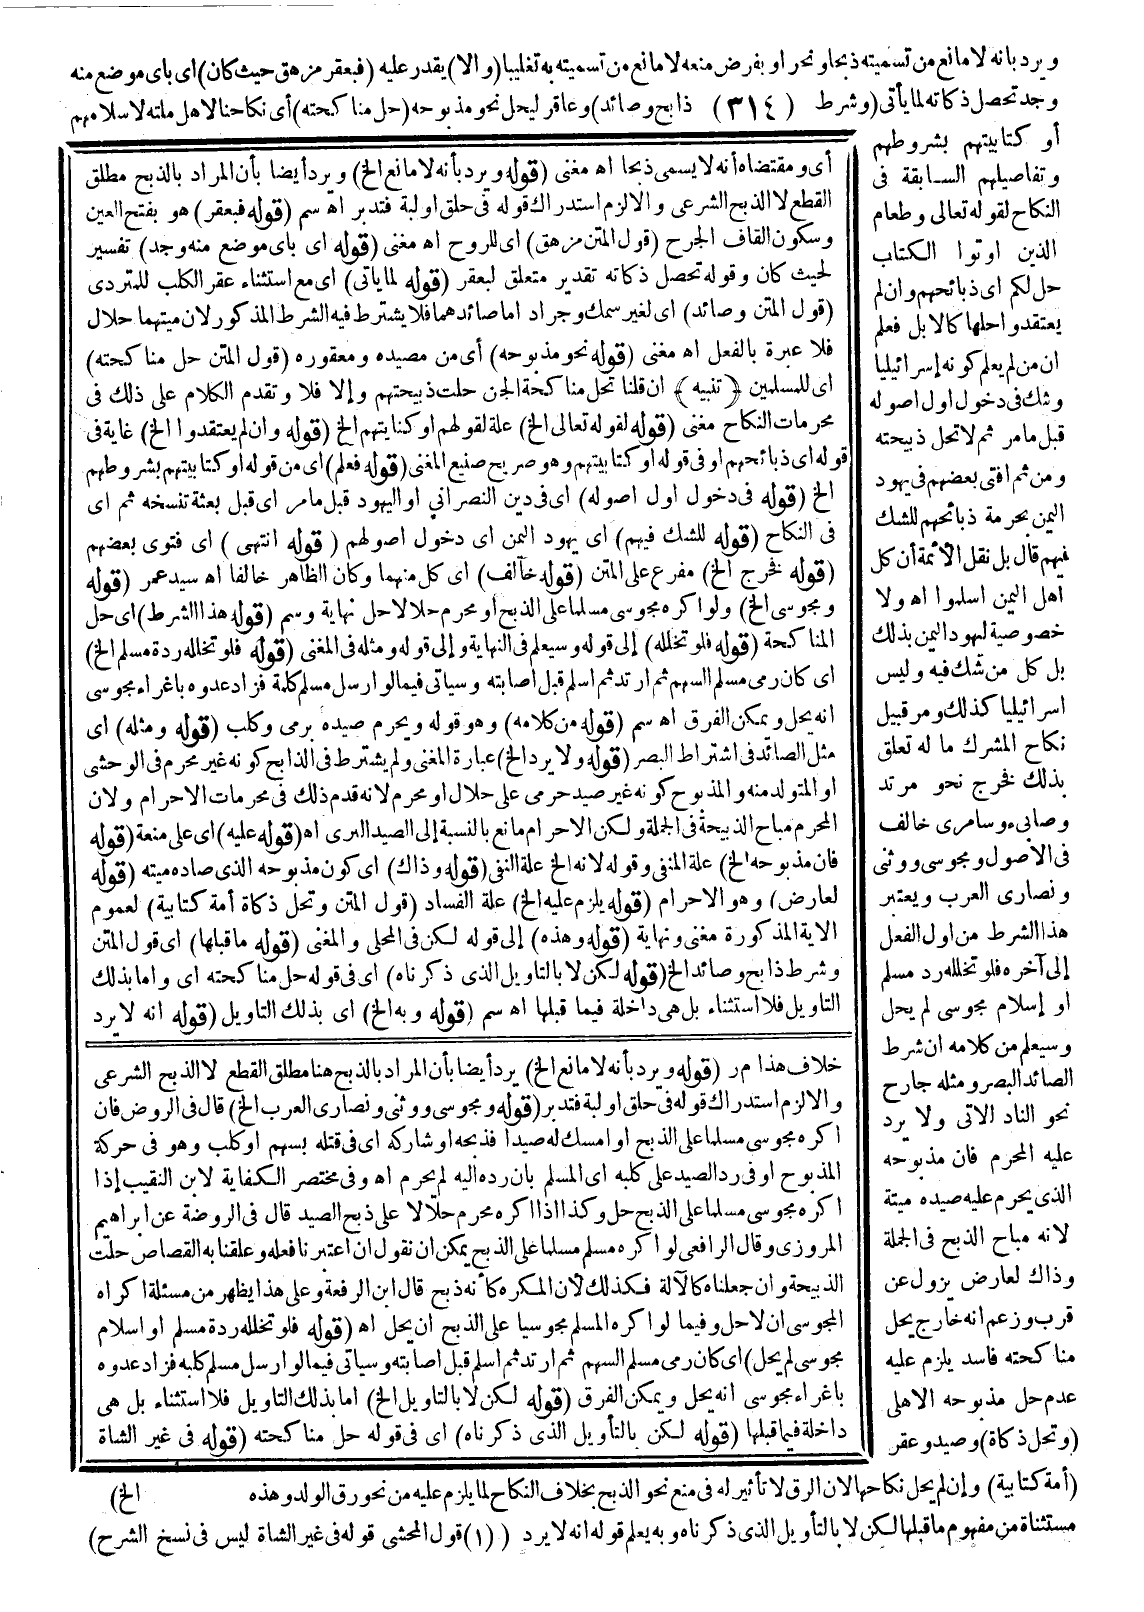 ويرد بانه لا مانع من تسميته ذبحا ونحر او بفرض منعه لا مانع من تسميته به تغليبا (والا) يقدر عليه (فبعقر مزهق حيث كان) اى باى موضع منه
وجد تحصل ذكاته لما يأتى (وشرط (٣١٤) ذابح وصائد) وعاقر ليحل نحو مذبوحه (حل مناكحته) أى نكاحنا لاهل ملته لاسلامهم
أو كتابيتهم بشروطهم
وتفاصيلهم السابقة فى
النكاح لقوله تعالى وطعام
الذين اوتوا الكتاب
حل لكم اى ذبائحهم وان لم
يعتقدوا حلها كالابل فعلم
ان من لم يعلم كونه إسرائيليا
وشك فى دخول اول اصوله
قبل مامر ثم لا تحل ذبيحته
ومن ثم افتى بعضهم فى يهود
اليمن بحرمة ذبائحهم للشك
فيهم قال بل نقل الأئمة أن كل
اهل اليمن اسلموا اه ولا
خصوصية ليهود اليمن بذلك
بل كل من شك فيه وليس
اسرائيليا كذلك ومر قبيل
نكاح المشرك ما له تعلق
بذلك فخرج نحو مرتد
وصابىء وسامرى خالف
فى الأصول ومجوسى ووثنى
ونصارى العرب ويعتبر
هذا الشرط من اول الفعل
إلى آخره فلو تخلله رد مسلم
او إسلام مجوسى لم يحل
وسيعلم من كلامه ان شرط
الصائد البصر ومثله جارح
نحو الناد الاتى ولا يرد
عليه المحرم فان مذبوحه
الذى يحرم عليه صيده ميتة
لانه مباح الذبح فى الجملة
وذاك لعارض يزول عن
قرب وزعم انه خارج بحل
مناكحته فاسد يلزم عليه
عدم حل مذبوحه الاهلى
(وتحل ذكاة) وصيد وعقر
(أمة كتابية) وإن لم يحل نكاحها لان الرق لا تأثير له فى منع نحو الذبح بخلاف النكاح لما يلزم عليه من نحو رق الولد وهذه
مستثناة من مفهوم ما قبلها لكن لا بالتأويل الذى ذكرناه وبه يعلم قوله انه لا يرد
أى ومقتضاه أنه لا يسمى ذبحا اه مغنى (قوله ويرد بأنه لا مانع الخ) ويرد أيضا بأن المراد بالذبح مطلق
القطع لا الذبح الشرعى والا لزم استدراك قوله فى حلق او لبة فتدبر اه سم (قوله فبعقر) هو بفتح العين
وسكون القاف الجرح (قول المتن مزهق) اى للروح اه مغنى (قوله اى باى موضع منه وجد) تفسير
لحيث كان وقوله تحصل ذكاته تقدير متعلق لبعقر (قوله لما يأتى) اى مع استثناء عقر الكلب للمتردى
(قول المتن وصائد) اى لغير سمك وجراد اما صائدهما فلا يشترط فيه الشرط المذكور لان ميتهما حلال
فلا عبرة بالفعل اه مغنى (قوله نحو مذبوحه) أى من مصيده ومعقوره (قول المتن حل مناكحته)
اى للمسلمين (تنبيه) ان قلنا تحل مناكحة الجن حلت ذبيحتهم وإلا فلا وتقدم الكلام على ذلك فى
محرمات النكاح مغنى (قوله لقوله تعالى الخ) علة لقولهم او كتابيتهم الخ (قوله وان لم يعتقدوا الخ) غاية فى
قوله اى ذبائحهم او فى قوله او كتابيتهم وهو صريح صنيع المغنى (قوله فعلم) اى من قوله او كتابيتهم بشروطهم
الخ (قوله فى دخول اول اصوله) اى فى دين النصرانى او اليهود قبل مامر اى قبل بعثة تنسخه ثم اى
فى النكاح (قوله للشك فيهم) اى يهود اليمن اى دخول اصولهم (قوله انتهى) اى فتوى بعضهم
(قوله فخرج الخ) مفرع على المتن (قوله خالف) اى كل منهما وكان الظاهر خالفا اه سيد عمر (قوله
ومجوسى الخ) ولو اكره مجوسى مسلما على الذبح او محرم حلالا حل نهاية وسم (قوله هذا الشرط) اى حل
المناكحة (قوله فلو تخلله) إلى قوله وسيعلم فى النهاية وإلى قوله ومثله فى المغنى (قوله فلو تخلله ردة مسلم الخ)
اى كان رمى مسلم السهم ثم ارتد ثم اسلم قبل اصابته وسياتى فيما لو ارسل مسلم كلبه فزاد عدوه باغراء مجوسى
انه يحل ويمكن الفرق اه سم (قوله من كلامه) وهو قوله ويحرم صيده برمى وكلب (قوله ومثله) اى
مثل الصائد فى اشتراط البصر (قوله ولا يرد الخ) عبارة المغنى ولم يشترط فى الذابح كونه غير محرم فى الوحشى
او المتولد منه والمذبوح كونه غير صيد حرمى على حلال او محرم لانه قدم ذلك فى محرمات الاحرام ولان
المحرم مباح الذبيحة فى الجملة ولكن الاحرام مانع بالنسبة إلى الصيد البرى اه (قوله عليه) اى على منعة (قوله
فان مذبوحه الخ) علة المنفى وقوله لانه الخ علة النفى (قوله وذاك) اى كون مذبوحه الذى صاده ميته (قوله
لعارض) وهو الاحرام (قوله يلزم عليه الخ) علة الفساد (قول المتن وتحل ذكاة أمة كتابية) لعموم
الاية المذكورة مغنى ونهاية (قوله وهذه) إلى قوله لكن فى المحلى والمغنى (قوله ما قبلها) اى قول المتن
وشرط ذابح وصائد الخ (قوله لكن لا بالتاويل الذى ذكرناه) اى فى قوله حل مناكحته اى واما بذلك
التاويل فلا استثناء بل هى داخلة فيما قبلها اه سم (قوله وبه الخ) اى بذلك التاويل (قوله انه لا يرد
خلاف هذا مر (قوله ويرد بأنه لا مانع الخ) يرد أيضا بأن المراد بالذبح هنا مطلق القطع لا الذبح الشرعى
والا لزم استدراك قوله فى حلق او لبة فتدبر (قوله ومجوسى ووثنى ونصارى العرب الخ) قال فى الروض فان
اكره مجوسى مسلما على الذبح او امسك له صيدا فذبحه او شاركه اى فى قتله بسهم او كلب وهو فى حركة
المذبوح او فى رد الصيد على كلبه اى المسلم بان رده اليه لم يحرم اه وفى مختصر الكفاية لابن النقيب إذا
اكره مجوسى مسلما على الذبح حل وكذا اذا اكره محرم حلالا على ذبح الصيد قال فى الروضة عن ابراهيم
المروزى وقال الرافعى لو اكره مسلم مسلما على الذبح يمكن ان نقول ان اعتبرنا فعله وعلقنا به القصاص حلت
الذبيحة وان جعلناه كالآلة فكذلك لأن المكره كأنه ذبح قال ابن الرفعة وعلى هذا يظهر من مسئلة اكراه
المجوسى ان لا حل وفيما لو اكره المسلم مجوسيا على الذبح ان يحل اه (قوله فلو تخلله ردة مسلم او اسلام
مجوسى لم يحل) اى كان رمى مسلم السهم ثم ارتد ثم اسلم قبل اصابته وسياتى فيما لو ارسل مسلم كلبه فزاد عدوه
باغراء مجوسى انه يحل ويمكن الفرق (قوله لكن لا بالتاويل الخ) اما بذلك التاويل فلا استثناء بل هى
داخلة فيما قبلها (قوله لكن بالتأويل الذى ذكرناه) اى فى قوله حل مناكحته (قوله فى غير الشاة
الخ)
((١) قول المحشى قوله فى غير الشاة ليس فى نسخ الشرح)